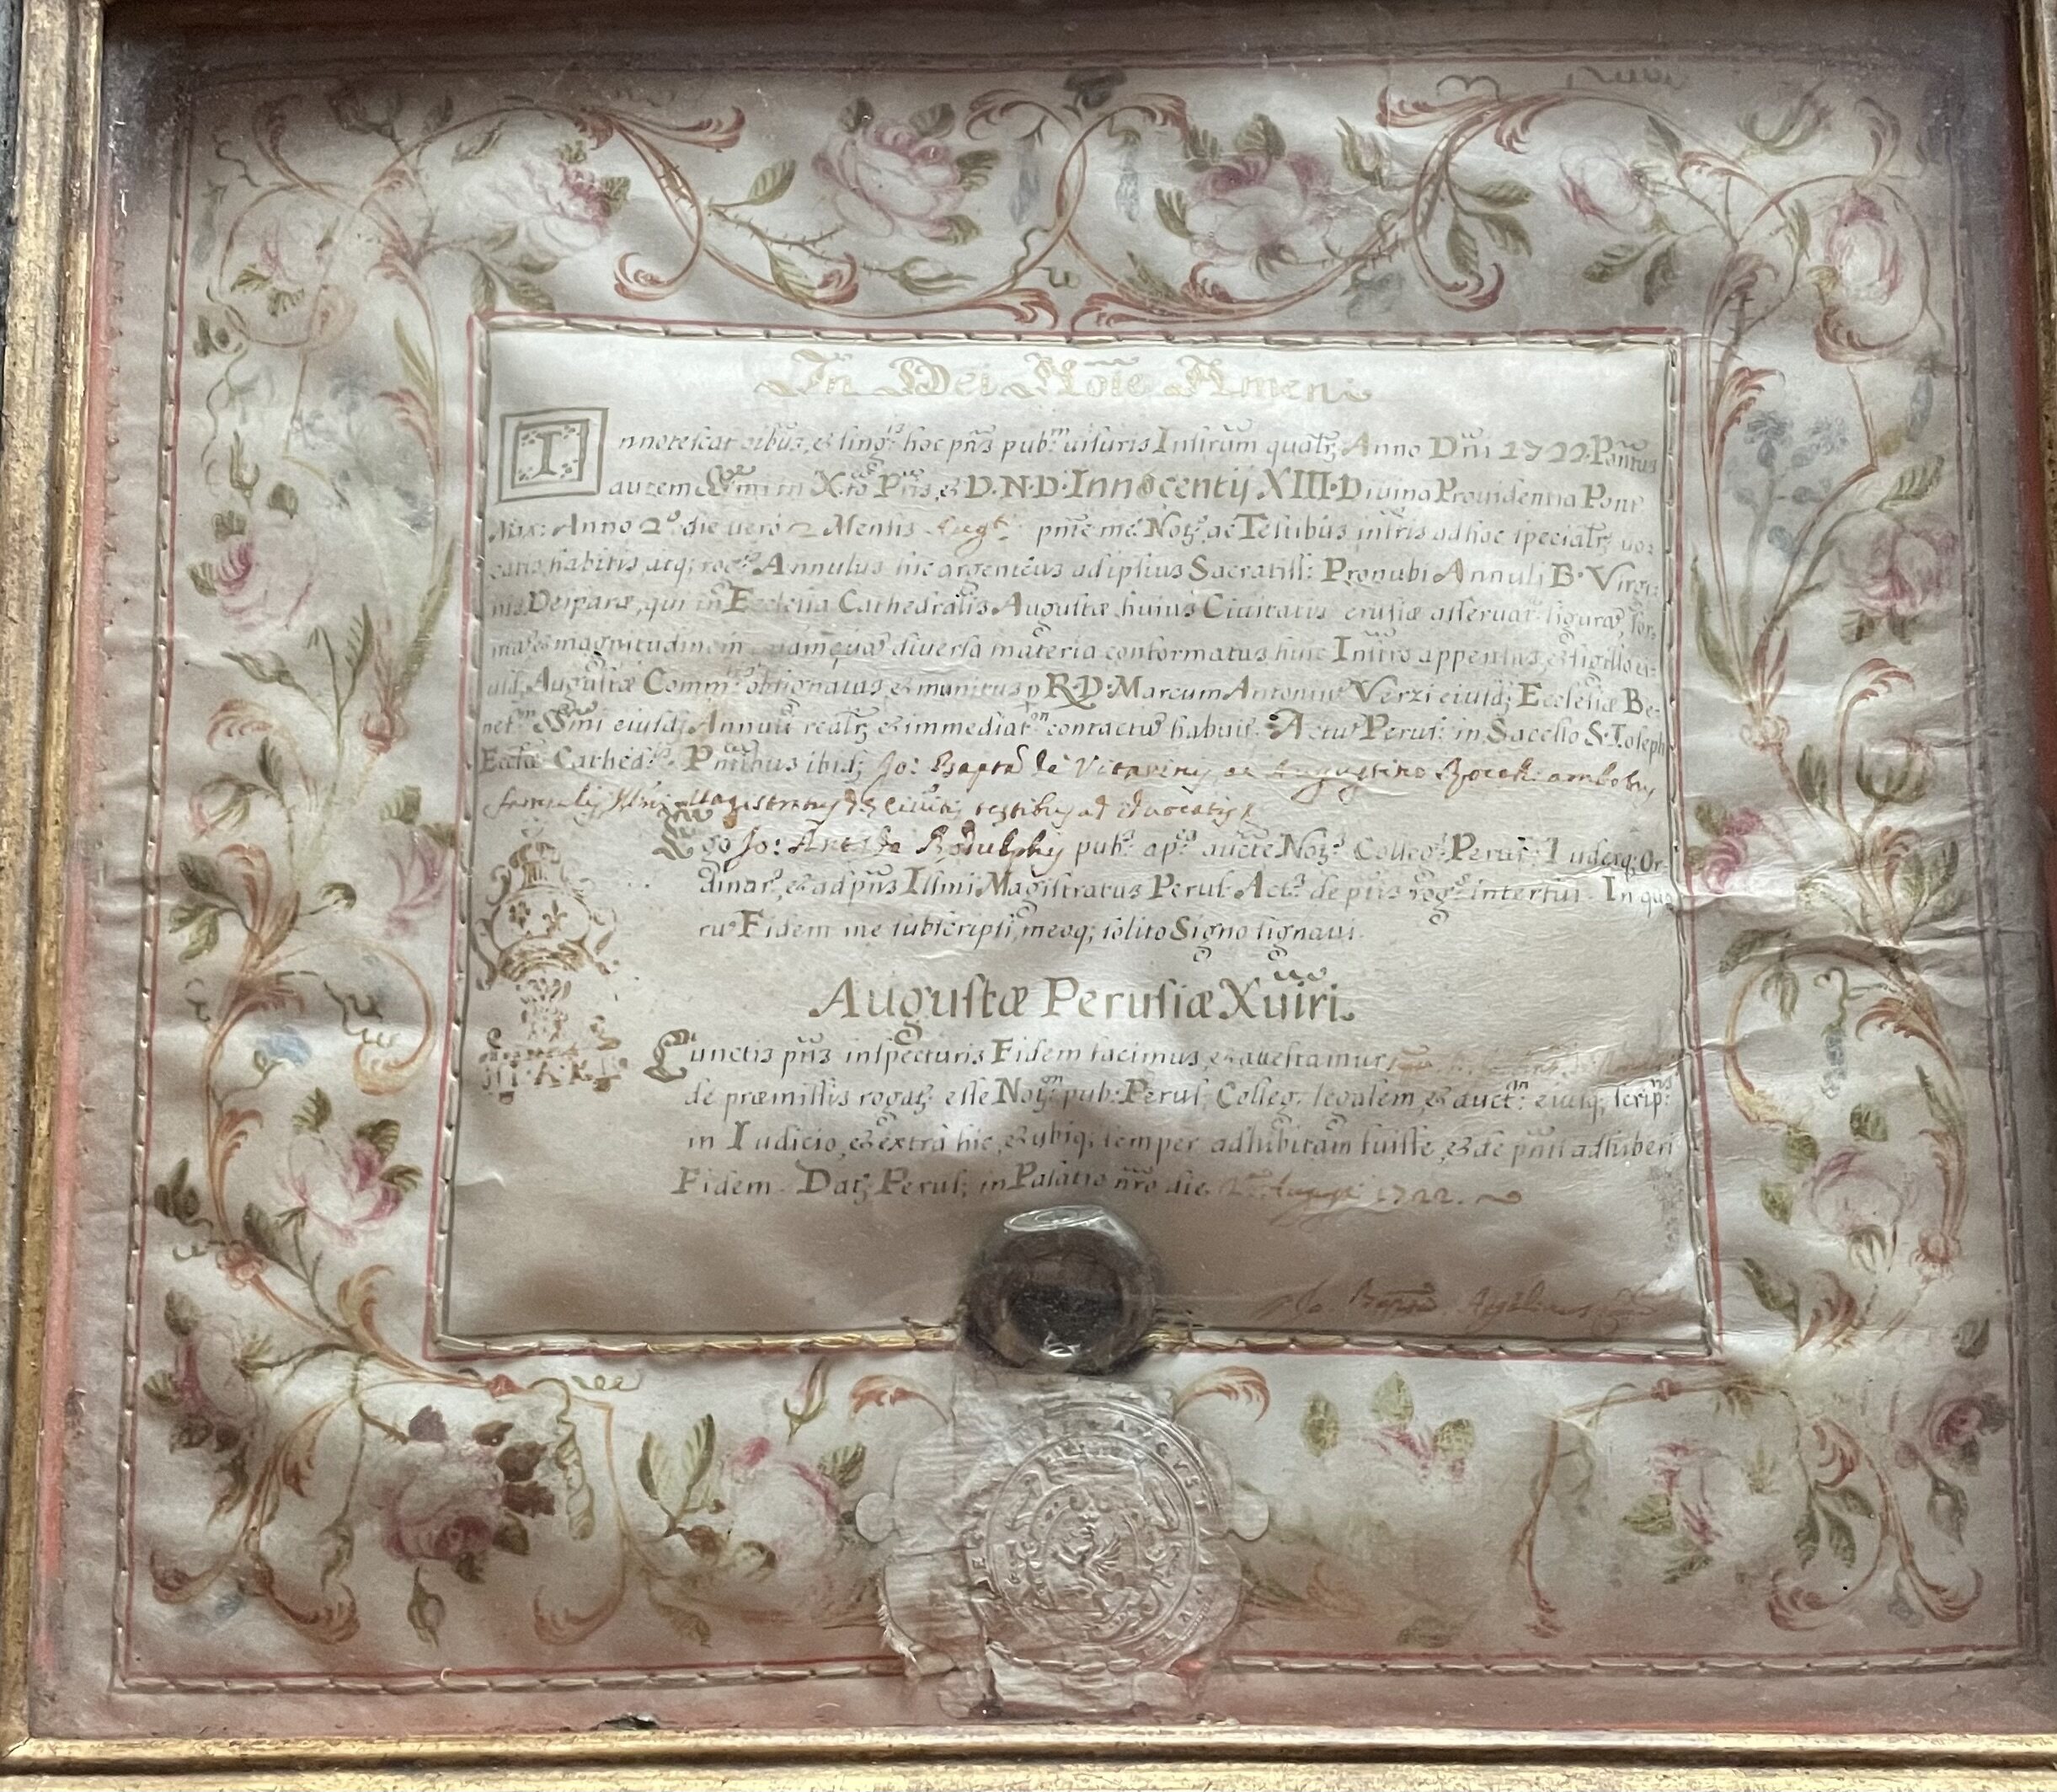 In Dei Nōie Amen
Innotescat oībus, & sing.s hoc pn̄s pub.m visuris Instrūm qualr̄ Anno Dn̄i 1722. Pontus
autem Sm̄i in X.to Pr̄is, & D.N.D. Innocentij XIII. Divina Providentia Pont
Max: Anno 2.o die vero 2 Mensis Augti pn̄te me Not.o ac Testibus infris ad hoc specialr̄ vo-
catis, habitis, atq; rog.s Annulus hic argenteus ad ipsius Sacratiss: Pronubi Annuli B. Virgi-
nis Deiparæ, qui in Ecclesia Cathedralis Augustæ huius Civitatis erusiæ asservat figurā, for-
mā, & magnitudinem quamquā diversa materia conformatus huic Instro appensus, & sigillo ei-
usd. Augustæ Comm.tis obsignatus, & munitus p R.D. Marcum Antoniū Verzi eiusd; Ecclesiæ Be-
net.m Sm̄i eiusd; Annuli realr̄ & immediat.m contactū habuit. Actū Perus: in Sacello S. Ioseph
Eccl̄æ Cathed.lis Pn̄tibus ibid; Jo: Bapta de Vitarinis ac Augustino ambobus
famulis Illm̄i Magistratus testibus ad vocatis
Ego Jo: Ant. de Rodulphis pub.s ap.ca aucte Not.s Colleg.s Perus: Iudexq; Or-
dinar.s, & ad pn̄s Illmi Magistratus Perus: Act.s de ptis rog.s interfui. In quo
rū Fidem me subscripsi, meoq; solito Signo signavi.
Augustæ Perusiæ Xviri.
Cunctis pn̄s inspecturis Fidem facimus, & attestamur
de præmissis rogat. esse Not.m pub: Perus: Colleg. legalem, & auct.m eiusq; scrip.ris
in Iudicio, & extra hic, & ubiq; semper adhibitam fuisse, & de pn̄ti adhiberi
Fidem. Dat. Perus; in Palatio nr̄o die 2 Augti 1722.
Jo. Bapta